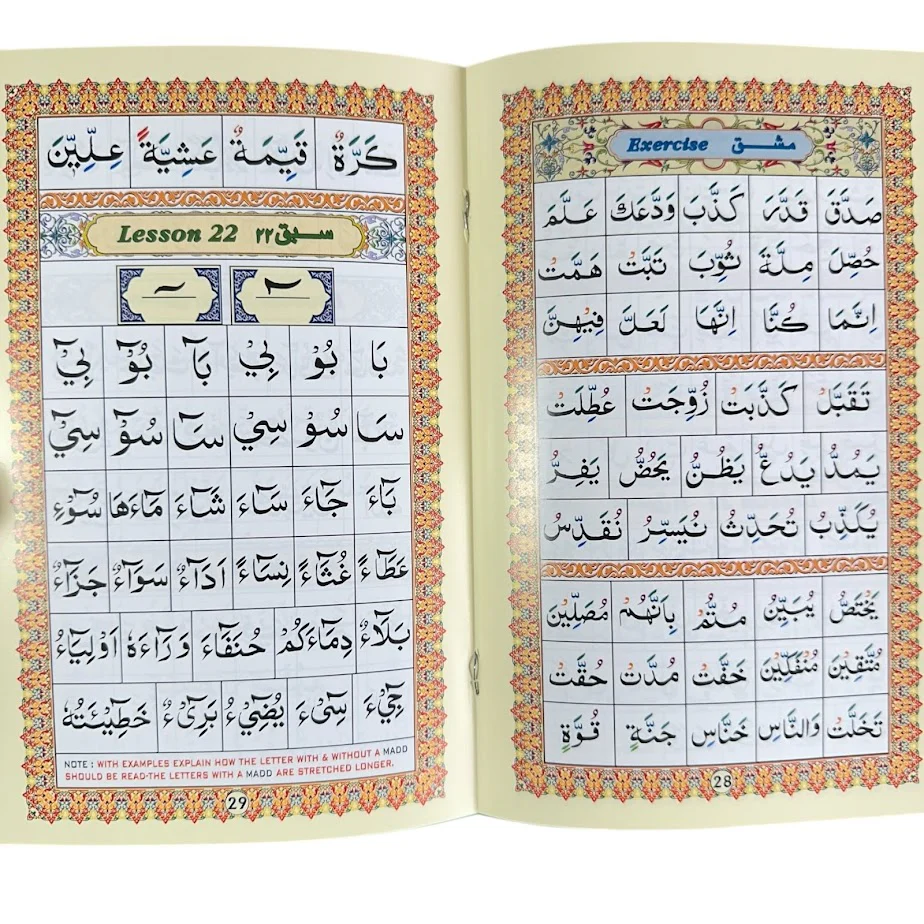 Exercise مشق
صَدَّقَ قَدَّرَ كَذَّبَ وَدَّعَكَ عَلَّمَ
حُصِّلَ مِلَّةَ ثُوِّبَ تَبَّتْ هَمَّتْ
اِنَّمَا كُنَّا اِنَّهَا لَعَلَّ فِيْهِنَّ
تَقَبَّلَ كَذَّبَتْ زُوِّجَتْ عُطِّلَتْ
يَمُدُّ يَدُعُّ يَظُنُّ يَحُضُّ يَفِرُّ
يُكَذِّبُ تُحَدِّثُ نُيَسِّرُ نُقَدِّسُ
يَخْتَصُّ يُبَيِّنُ مُتُّمْ بِاَنَّهُمْ مُصَلِّيْنَ
مُتَّقِيْنَ خَفَّتْ مُدَّتْ حُقَّتْ
تَخَلَّتْ وَالنَّاسِ خَنَّاسِ جَنَّةٍ قُوَّةٍ
28
كَرَّةٌ قَيِّمَةٌ عَشِيَّةً عِلِّيِّيْنَ
Lesson 22 سبق ۲۲
بَا بُوْ بِيْ بَآ بُوْٓ بِيْٓ
سَا سُوْ سِيْ سَآ سُوْٓ سِيْٓ
بَآءَ جَآءَ سَآءَ شَآءَ مَآءَهَا سُوْٓءِ
عَطَآءً غُثَآءً نِسَآءً اَدَآءٌ سَوَآءٌ جَزَآءٌ
بَلَآءٌ دِمَآءَكُمْ حُنَفَآءَ وَرَآءَهٗ اَوْلِيَآءُ
جِيْٓءَ سِيْٓءَ يُضِيْٓءُ بَرِيْٓءٌ خَطِيْٓئَتُهٗ
NOTE : WITH EXAMPLES EXPLAIN HOW THE LETTER WITH & WITHOUT A MADD
SHOULD BE READ-THE LETTERS WITH A MADD ARE STRETCHED LONGER.
29